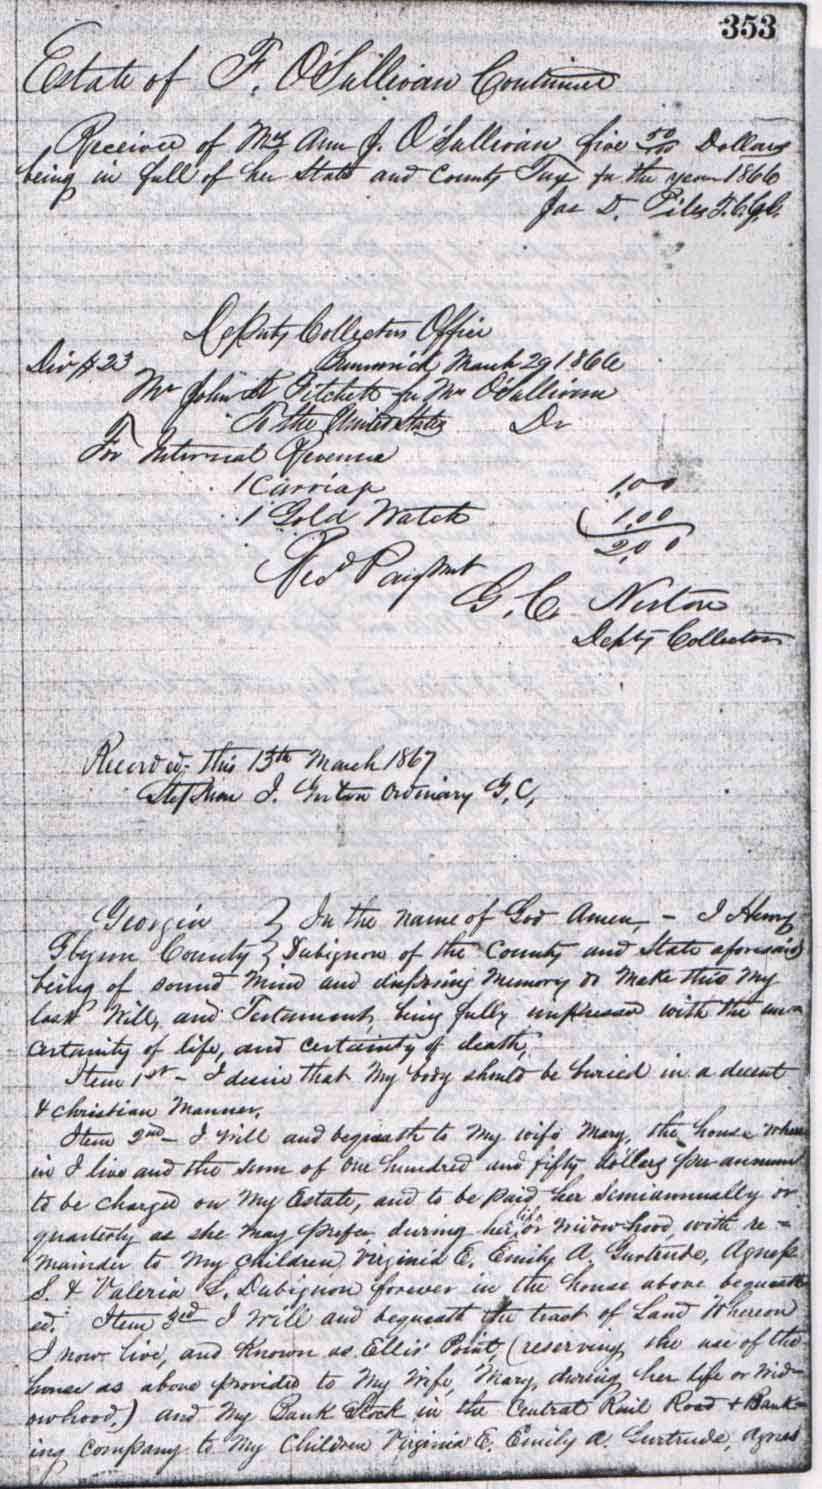 353
Estate of F. O'Sullivan Continued
Received of Mrs Ann J. O'Sullivan five 50/100 Dollars
being in full of her State and County Tax for the year 1866
Jas D. Piles T.C.G.C.
Deputy Collectors Office
Div # 23 Brunswick March 29 1866
Mr John for Mrs O'Sullivan
To the United States Dr
For Internal Revenue
1 Carriage 1,00
1 Gold Watch 1,00
2,00
Recd Payment
G. C.
Depty Collector
Recorded this 13th March 1867
J. Ordinary G, C,
Georgia } In the name of God Amen, - I Henry
Glynn County } Dubignon of the County and State aforesaid
being of sound mind and disposing memory do make this my
last Will, and Testament, being fully impressed with the un-
certainity of life, and certainty of death,
Item 1st - I desire that my body should be buried in a decent
& christian manner.
Item 2nd - I will and bequeath to my wife Mary, the house where
in I live and the sum of one hundred and fifty dollars per annum
to be charged on my Estate, and to be paid her semiannually or
quarterly as she may prefer, during her life or widowhood, with re-
mainder to my children, Virginia E. Emily A. Gurtrude, Agness
S. & Valeria S. Dubignon forever in the house above bequeath
ed. Item 3rd I will and bequeath the tract of Land whereon
I now live, and Known as Ellis' Point, (reserving the use of the
house as above provided to my wife, Mary, during her life or wid-
owhood,) and my Bank Stock in the Central Rail Road & Bank-
ing company to my Children Virginia E. Emily A. Gurtrude, Agnes